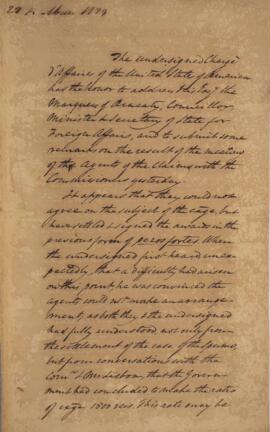 The Undersigned Chargé
d'Affaires of the United States of America
has the honor to address His Exy. the
Marquess of Aracaty, Councillor
Minister & Secretary of State for
Foreign Affairs, and to submit some
remarks on the result of the meeting
of the Agents of the Claims with the
Commissioners yesterday.
It appears that they could not
agree on the subject of the exge, but
have settled & signed the awards in the
previous form of pezos fortes. When
the undersigned first heard unex-
pectedly, that a difficulty had arisen
on this point, he was convinced the
agents could not make an arrange-
ment, as both they & the undersigned
had fully understood not only from
the settlement of the case of the
but from conversations with the
that the Govern-
ment had concluded to make the rate
of exge 1800 reis. This rate may be